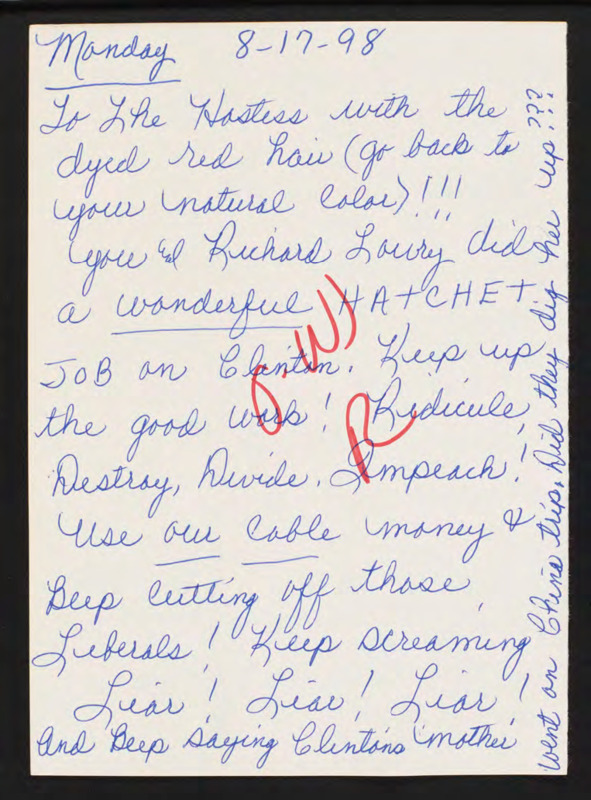 Monday 8-17-98
To The Hostess with the
dyed red hair (go back to
your natural color)!!!
you & Richard Lowry did
a wonderful HATCHET
JOB on Clinton. Keep up
the good work! Ridicule,
Destroy, Divide. Impeach!
Use our cable money &
Keep cutting off those
Liberals! Keep screaming
Liar! Liar! Liar!
And Keep saying Clintons mother
went on China trip. Did they dig her up???
J.W)
R